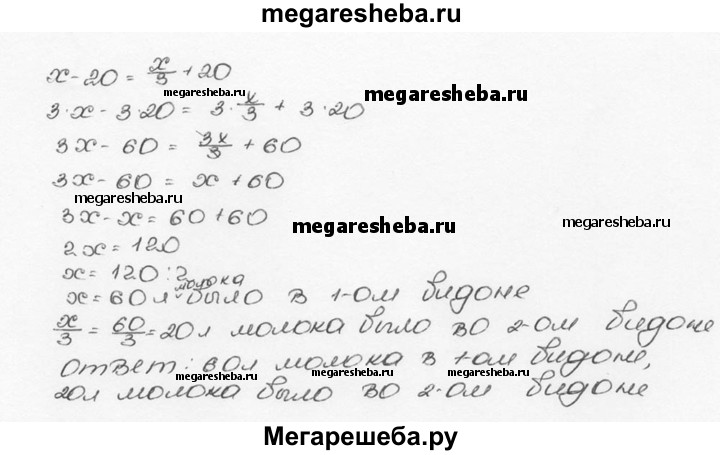 megaresheba.ru
x - 20 = x/3 + 20
megaresheba.ru
megaresheba.ru
3·x - 3·20 = 3·x/3 + 3·20
3x - 60 = 3x/3 + 60
3x - 60 = x + 60
megaresheba.ru
3x - x = 60 + 60
megaresheba.ru
megaresheba.ru
2x = 120
x = 120 : 2
x = 60 л молока было в 1-ом бидоне
x/3 = 60/3 = 20 л молока было во 2-ом бидоне
Ответ: 60л молока в 1-ом бидоне,
megaresheba.ru
megaresheba.ru
megaresheba.ru
20л молока было во 2-ом бидоне
Мегарешеба.ру